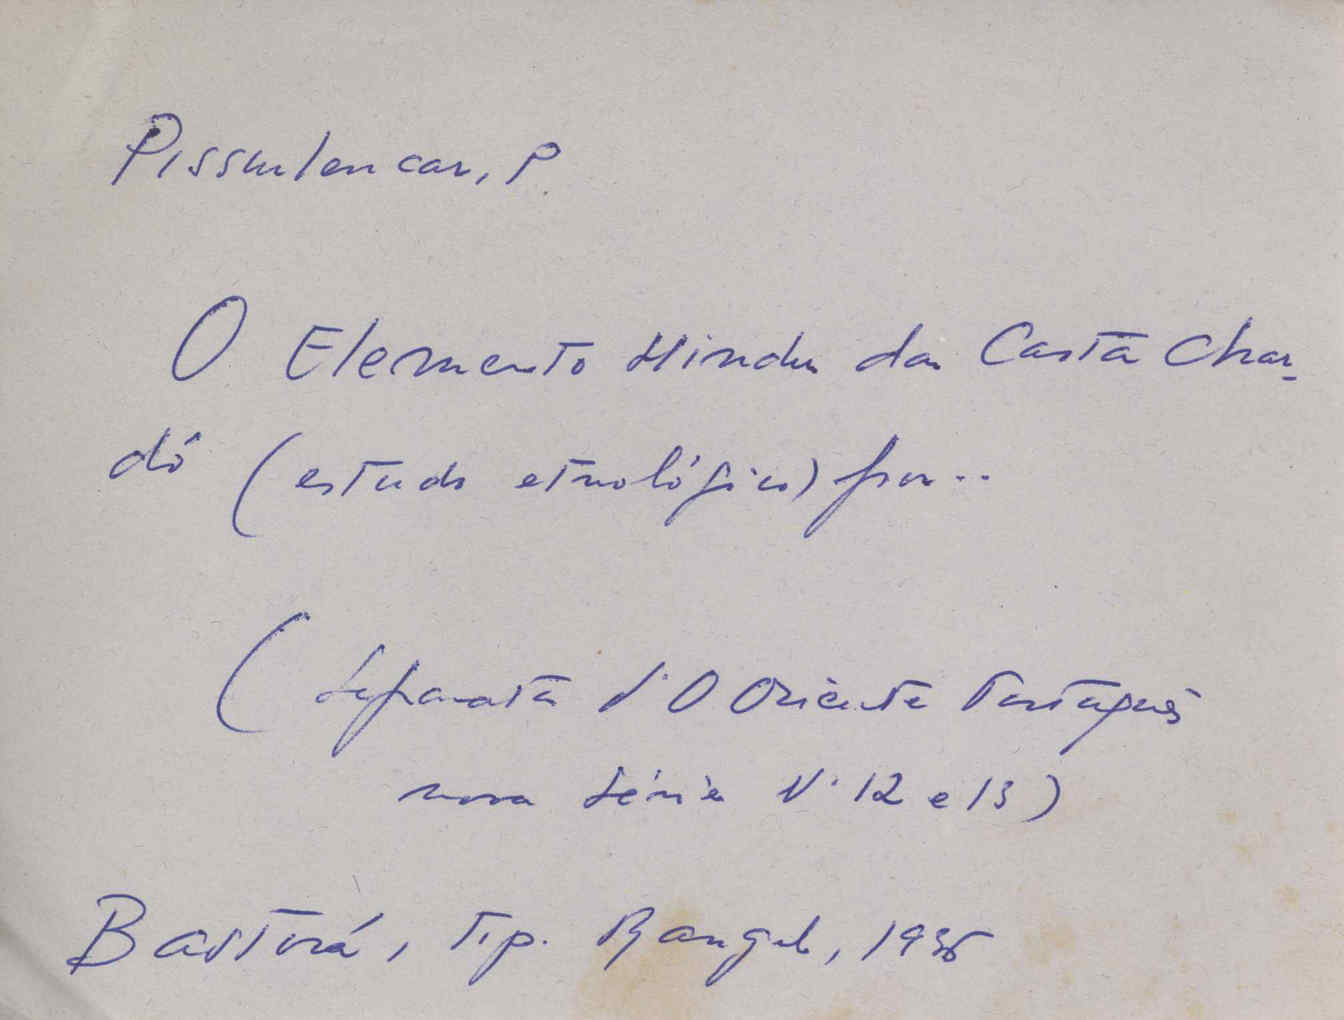 Pissurlencar, P.
O Elemento Hindu da Casta Char-
dó (estudo etnológico) por..
(Separata d'O Oriente Português
nova série N. 12 e 13)
Bastorá, Tip. Rangel, 1936